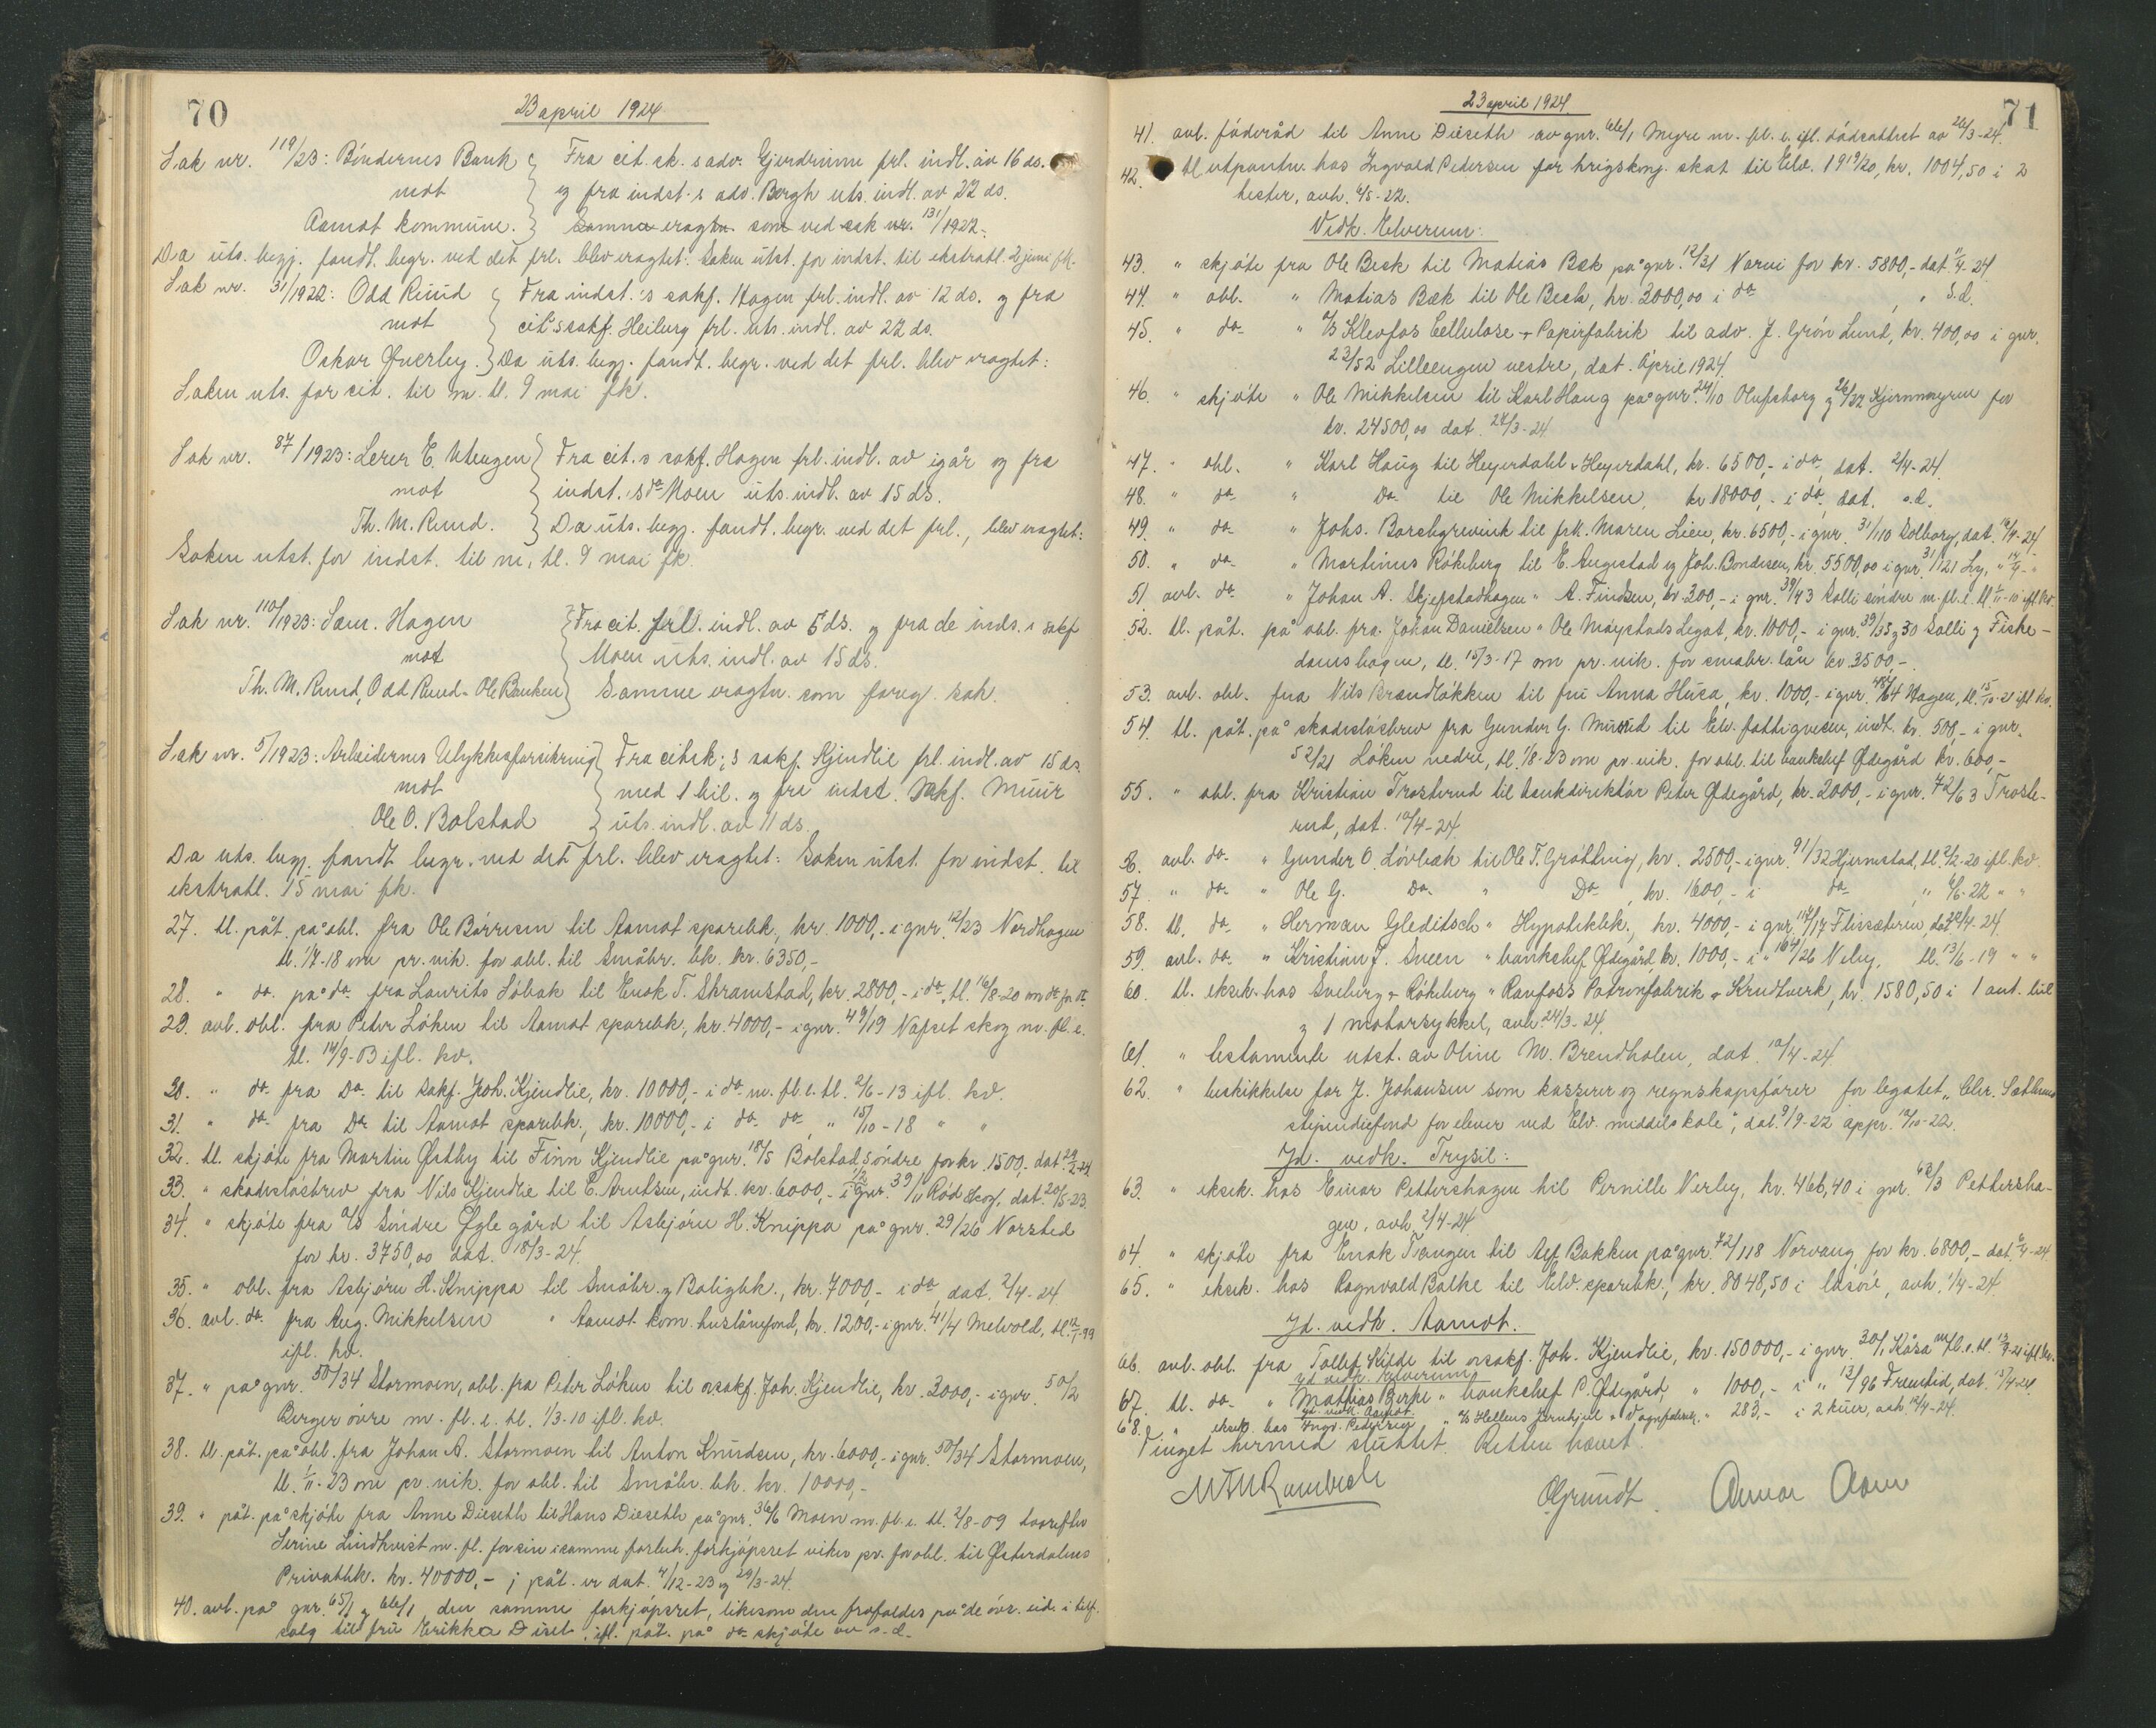 70
23 april 1924
Sak nr. 119/23: Bøndernes Bank } Fra cit. sk. s adv. Gjerdrum frl. indl. av 16 ds.
mot } og fra indst. s adv. Bergh uts. indl. av 22 ds.
Aamot kommune. } Samme eragtn. som ved sak nr. 131/1922.
Da uts. begj. fandt. begr. ved det frl. blev eragtet: Saken utst. for indst. til ekstratl. 2 juni fk.
Sak nr. 31/1922: Odd Ruud } Fra indst.'s sakf. Hagen frl. indl. av 12 ds. og fra
mot } cit.'s sakf. Heiberg frl. uts. indl. av 22 ds.
Oskar Øverby. } Da uts. begj. fandt. begr. ved det frl. blev eragtet:
Saken uts. for cit. til m. tl. 9 mai fk.
Sak nr. 87/1923: Lerer E. Utengen } Fra cit. s sakf. Hagen frl. indl. av igår og fra
mot } indst. 's do Moen uts. indl. av 15 ds.
Th. M. Ruud. } Da uts. begj. fandt. begr. ved det frl., blev eragtet:
Saken utst. for indst. til m. tl. 9 mai fk.
Sak nr. 110/1923: Sam. Hagen } Fra cit. frl. indl. av 5 ds. og fra de inds. s sakf
mot } Moen uts. indl. av 15 ds.
Th. M. Ruud, Odd Ruud - Ole Bakken } Samme eragtn. som foreg. sak.
Sak nr. 5/1923: Arbeidernes Ulykkesforsikring } Fra citsk.'s sakf. Kjendlie frl. indl. av 15 ds.
mot } med 1 bil. og fra indst. sakf. Muur
Ole O. Bolstad } uts. indl. av 11 ds.
Da uts. begj. fandt. begr. ved det frl. blev eragtet: Saken utst. for indst. til
ekstratl. 15 mai fk.
27. tl. påt. på obl. fra Ole Børresen til Aamot sparebk., kr. 1000,- i gnr. 12/23 Nordhagen
tl. 1/7-18 om pr. vik. for obl. til Småbr. bk. kr. 6350,-
28. " do. på do. fra Laurits Løbak til Enok T. Skramstad, kr. 2800,- i do, tl. 16/8-20 om do pr. vk.
29. avl. obl. fra Peter Løken til Aamot sparebk., kr. 4000,- i gnr. 49/19 Napset skog m. fl. e.
tl. 14/9-03 ifl. kv.
30. " do fra Do til sakf. Joh. Kjendlie, kr. 10000,- i do m. fl. e. tl. 2/6-13 ifl. kv.
31. " do fra Do til Aamot sparebk., kr. 10000,- i do do, " 15/10-18 " "
32. tl. skjøte fra Martin Østby til Finn Kjendlie på gnr. 18/5 Bolstad søndre for kr. 1500,- dat. 29/2-24
33. " skadesløsbrev fra Nils Kjendlie til E. Arntsen, indt. kr. 6000,- i 1/2 gnr. 39/11 Rød skog, dat. 20/5-23.
34. " skjøte fra a/s Søndre Øgle gård til Asbjørn H. Knippa på gnr. 29/26 Norsted
for kr. 3750,00 dat. 18/3-24.
35. " obl. fra Asbjørn H. Knippa til Småbr. og Boligbk., kr. 7000,- i do dat. 2/4-24
36. avl. do. fra Aug. Mikkelsen " Aamot kom. huslånefond, kr. 1200,- i gnr. 41/4 Melvold, tl. 12/1-99
ifl. kv.
37. " på gnr. 50/34 Stormoen, obl. fra Peter Løken til o.sakf. Joh. Kjendlie, kr. 3000,- i gnr. 50/2
Berger øvre m. fl. e. tl. 1/3-10 ifl. kv.
38. tl. påt. på obl. fra Johan A. Stormoen til Anton Knudsen, kr. 6000,- i gnr. 50/34 Stormoen,
tl. 1/11-23 om pr. vik. for obl. til Småbr. bk. kr. 10000,-
39. " påt. på skjøte fra Anne Dieseth til Hans Dieseth på gnr. 36/6 Moen m. fl. e. tl. 2/8-09 hvorefter
Serine Lindkvist m. fl. for sin i samme forbeh. forkjøpsret viker pr. for obl. til Østerdalens
Privatbk. kr. 40000,- ; påt. er dat. 4/12-23 og 29/3-24.
40. avl. på gnr. 65/1 og 66/1 den samme forkjøpsret, likesom den frafaldes på de øvr. eid. i tilf.
salg til fru Erikka Diset, ifl. påt. på do skjøte av s. d.
71
23 april 1924.
41. avl. føderåd til Anne Dieseth av gnr. 66/1 Myre m. fl. e. ifl. dødsattest av 26/3-24.
42. tl. utpantn. hos Ingvald Pedersen for krigskonj. skat til Elv. 1919/20, kr. 1004,50 i 2
hester, avh. 6/5-22.
Vedk. Elverum:
43. " skjøte fra Ole Bæk til Matias Bæk på gnr. 12/31 Narvi for kr. 5800,- dat. 11/4-24
44. " obl. " Matias Bæk til Ole Bæk, kr. 3000,00 i do , " s.d.
45. " do " a/s Klevfos Cellulose + Papirfabrik til adv. J. Grøn Lund, kr. 400,00 i gnr.
23/52 Lilleengen vestre, dat. April 1924.
46. " skjøte " Ole Mikkelsen til Karl Haug på gnr. 24/10 Olufsborg og 26/32 Kjernmyren for
kr. 24500,00 dat. 28/3-24
47. " obl. " Karl Haug til Heyerdahl & Heyerdahl, kr. 6500,- i do, dat. 2/4-24.
48. " do " Do til Ole Mikkelsen, kr 18000,- i do, dat. s.d.
49. " do " Johs. Borchgrevink til frk. Maren Lien, kr. 6500,- i gnr. 31/110 Solborg, dat. 12/4-24
50. " do " Martinus Røkeberg til E. Augestad og Joh. Bondesen, kr. 5500,00 i gnr. 31/121 Ly, " 14/4-"
51. avl. do " Johan A. Skjefstadhagen " A. Findsen, kr 300,- i gnr. 39/43 Solli søndre m. fl. e. tl. 1/11-10 ifl. kv.
52. tl. påt. på obl. fra Johan Danielsen " Ole Møystads Legat, kr. 1000,- i gnr. 39/35 og 30 Solli og Fiske-
damshagen, tl. 15/3-17 om pr. vik. for smabr. lån kr. 3500,-.
53. avl. obl. fra Nils Brændløkken til fru Anna Husa, kr. 1000,- i gnr. /64 Hagen, tl. 15/10-21 ifl. kv.
54. tl. påt. på skadesløsbrev fra Gunder G. til Elv. fattigvesen, indt. kr. 500,- i gnr.
52/21 Løken nedre, tl. 1/8-23 om pr. vik. for obl. til banksjef Ødegård kr. 600,-
55. " obl. fra Kristian Trosterud til bankdirektør Peter Ødegård, kr. 2000,- i gnr. 72/63 Troste-
rud, dat. 10/4-24.
56. avl. do. " Gunder O. Løvbæk til Ole T. Grøtting, kr. 2500,- i gnr. 91/32 Hjernestad, tl. 2/2-20 ifl. kv.
57. " do. " Ole G. Do. " Do, kr. 1600,- i do, " 6/6-22 " "
58. tl. do. " Herman Gleditsch " Hypotekbk., kr. 4000,- i gnr. 117/17 Flissæteren, dat. /4-24.
59. avl. do. " Kristian J. Sveen " banksjef Ødegård, kr. 1000,- i " 164/26 Neby, tl. 13/6-19 " "
60. tl. eksek. hos Sveberg & Røkeberg " Raufoss Patronfabrik & Krudtverk, kr. 1580,50 i 1 aut. bil
og 1 motorsykkel, avh. 24/3-24.
61. " testamente utst. av Oline M. Brendholen, dat. 10/4-24
62. " beskikkelse for J. Johansen som kasserer og regnskapsfører for legatet "Chr. Sæthrens
stipendiefond for elever ved Elv. middelskole", dat. 9/9-22 appr. 12/10-22.
Yd. vedk. Trysil:
63. " eksek. hos Einar Pettershagen til Pernille Nerby, kr. 466,40 i gnr. 63/3 Pettersha-
gen, avh. 2/4-24
64. " skjøte fra Enok Tangen til Alf Bakken på gnr. 72/118 Norvang for kr. 6800,- dat. 9/4-24
65. " eksek. hos Ragnvald Balke til Elv. sparebk., kr. 8048,50 i løsøre, avh. 1/4-24.
Yd. vedk. Aamot.
66. avl. obl. fra Tollef Kilde til o.sakf. Joh. Kjendlie, kr. 150000,- i gnr. 30/1 Kåsa m. fl. e. tl. 13/9-21 ifl. kv.
yd. vedk. Elverum:
67. tl. do " Mathias Berke " banksjef P. Ødegård, " 1000,- i " 13/96 Fremtid, dat. 15/4-24
yd. vedk. Aamot.
68. " eksek. hos Ingv. Pedersen " a/s Hellens Jernhjul & Vognfabrik " 283,- i 2 kuer, avh. 12/4-24.
Tinget hermed sluttet. Retten hævet.
OGrundt.